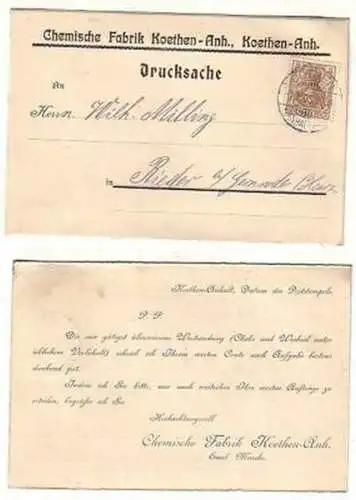 Chemische Fabrik Koethen-Anh., Koethen-Anh.
Drucksache
An
Herrn Wilh. Milling
in Rieder a/
Koethen-Anhalt, Datum des Poststempels.
P. P.
Die mir gütigst überwiesene (Cheks und Wechsel unter
üblichem Vorbehalt) schrieb ich Ihrem werten Conto nach Aufgabe bestens
dankend gut.
Indem ich Sie bitte, mir auch weiterhin Ihre werten Aufträge zu
erteilen, begrüße ich Sie
Hochachtungsvoll
Chemische Fabrik Koethen-Anh.
Emil